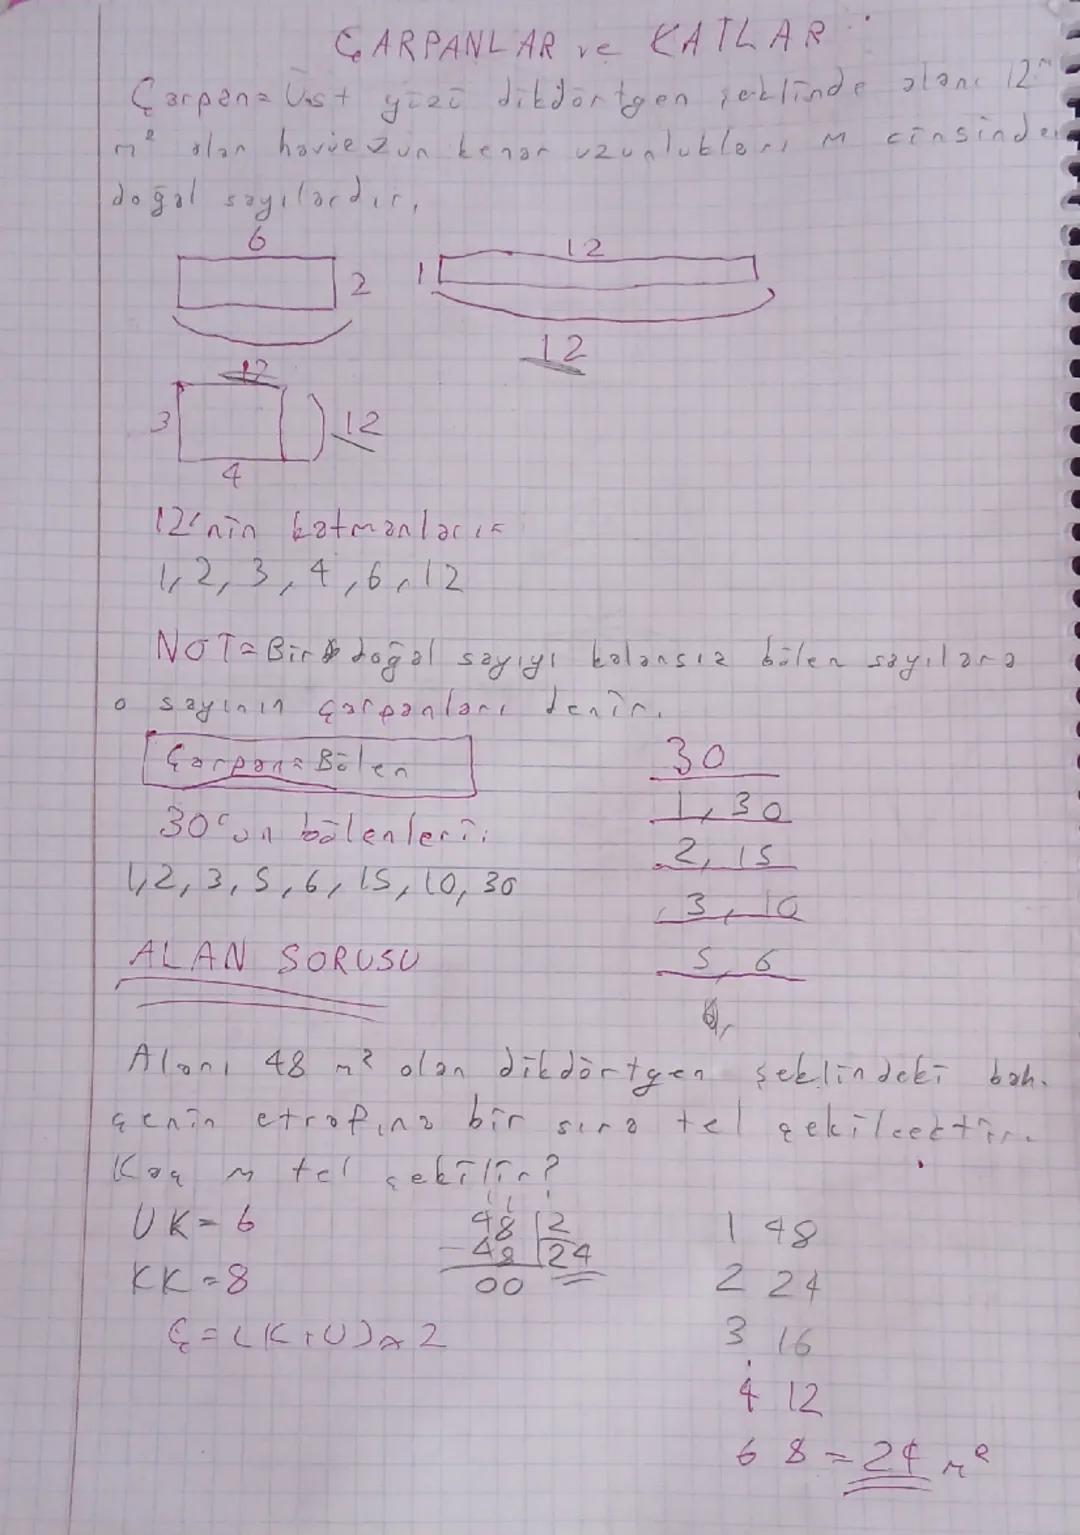 ÇARPANLAR ve KATLAR
Çarpan= Üst yüzü dikdörtgen şeklinde alanı 12
m² olan havuzun kenar uzunlukları m cinsinden
doğal sayılardır.
6
12
2
1
12
12
3
12
4
12'nin katmanları=
1, 2, 3, 4, 6, 12
NOT= Bir doğal sayıyı kalansız bölen sayılara
o sayının çarpanları denir.
Çarpan= Bölen
30
1, 30
30'un bölenleri:
2, 15
1, 2, 3, 5, 6, 15, 10, 30
3, 10
ALAN SORUSU
5, 6
Alanı 48 m² olan dikdörtgen şeklindeki bah-
çenin etrafına bir sıra tel çekilcektir.
Kaç m tel çekilir?
UK= 6
48 2
1 48
- 48 24
KK = 8
00
2 24
Ç = (K+U)x2
3 16
4 12
6 8 = 24 m²